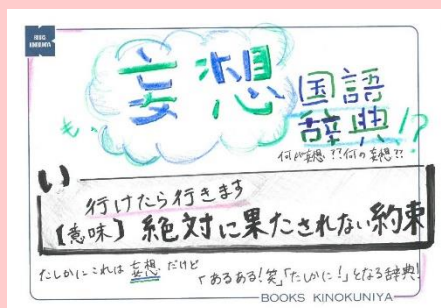 BOOKS
KINOKUNIYA
妄想
国語
辞典!?
何が妄想??何の妄想??
い
行けたら行きます
【意味】絶対に果たされない約束
たしかにこれは妄想だけど
「あるある!笑」「たしかに!」となる辞典!
BOOKS KINOKUNIYA